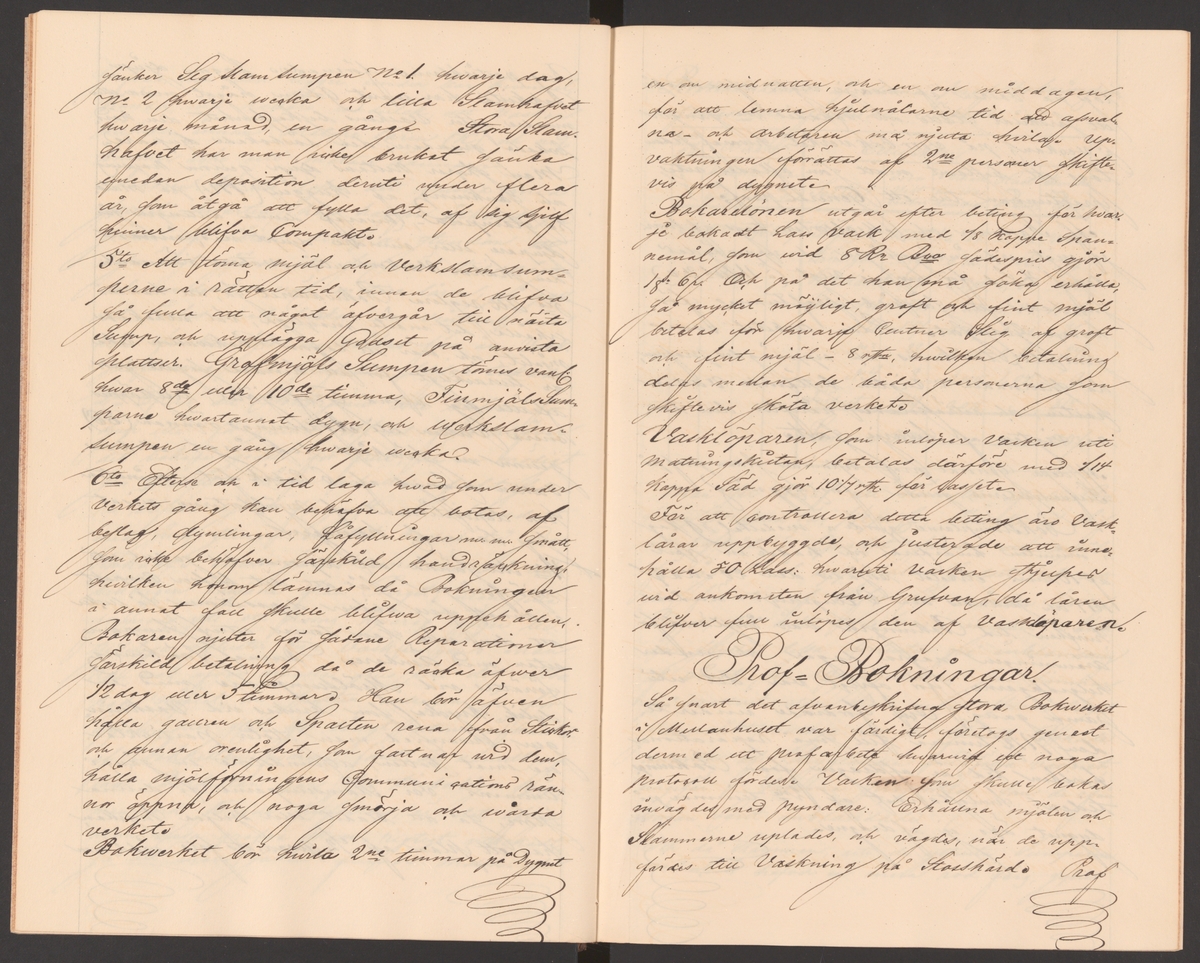 sänker Sig Slam sumpen No 1. hwarje dag,
No 2 hwarje wecka och lilla Slamhafvet
hwarje månad, en gång. Stora Slam-
hafvet har man icke brukat sänka
emedan deposition deruti under flera
år, som åtgå att fylla det, af sig sjelf
hinner blifva Compakt.
5to Att tömma mjöl och Verkslamsum-
perne i rättan tid, innan de blifva
så fulla att något äfvergår till nästa
Sump, och upplägga Godset på anvista
plattser. Grofmjöls Sumpen tömes vanl.
hwar 8de eller 10de timma, FinmjölsSum-
parne hwartannat dygn, och Werkslam-
sumpen en gång hwarje wecka.
6to Efterse och i tid laga hwad som under
Verkets gång kan behöfva att botas, af
beslag, dymlingar, påfyllningar m. m. Smått,
som icke behöfver särskild handräckning,
hwilken honom lämnas då Bokningen
i annat fall skulle blifwa uppehållen.
Bokaren njuter för sådane Reparationer
särskild betalning då de räcka äfwer
1/2 dag eller 5 timmar. Han bör äfven
hålla gallren och Spalten rena ifrån Stickor
och annan orenlighet, som fastnar wid dem,
hålla mjölförningens Communications rän-
nor öppna, och noga smörja och wårda
verket.
Bokwerket bör hwila 2ne timmar på Dygnet
en om midnatten, och en om middagen,
för att lemna hjulnålarne tid att afsval-
na - och arbetaren må njuta hvila. Up-
vaktningen förrättas af 2ne personer skifte-
vis på dygnet.
Bokarelönen utgår efter beting för hvar-
je bokadt Lass Vask med 1/8 Kappe Span-
nemål, som wid 8 Rr Bco sädespris gör
1 sk. 6 r. Och på det han må söka erhålla
så mycket möjligt, groft och fint mjöl
betalas för hwarje Centner Slig af groft
och fint mjöl - 8 rst, hwilken betalning
delas mellan de båda personerna som
skiftevis sköta verket.
Vasklöparen, som inlöper Vasken uti
Matningskistan, betalas därföre med 1/14
Kappa Säd gjör 10 1/7 rst. för Lasset.
För att controllera detta beting äro Vask
lårar uppbyggde, och justerade att inne-
hålla 50 Lass: hwaruti Vasken stjelpes
wid ankomsten från Grufvan, då låren
blifver full inlöpes den af Vasklöparen.
Prof=Bokningar.
Så snart det ofvanbeskrifna stora Bokwerket
i Mellanhuset var färdigt, företogs genast
dermed ett profarbete hwarwid ett noga
protocoll fördes. Vasken som skulle bokas
inwägdes med pyndare: Erhållna mjölen och
Slammerne uplades, och vägdes, när de upp-
fördes till Vaskning på Stosshärd. Prof